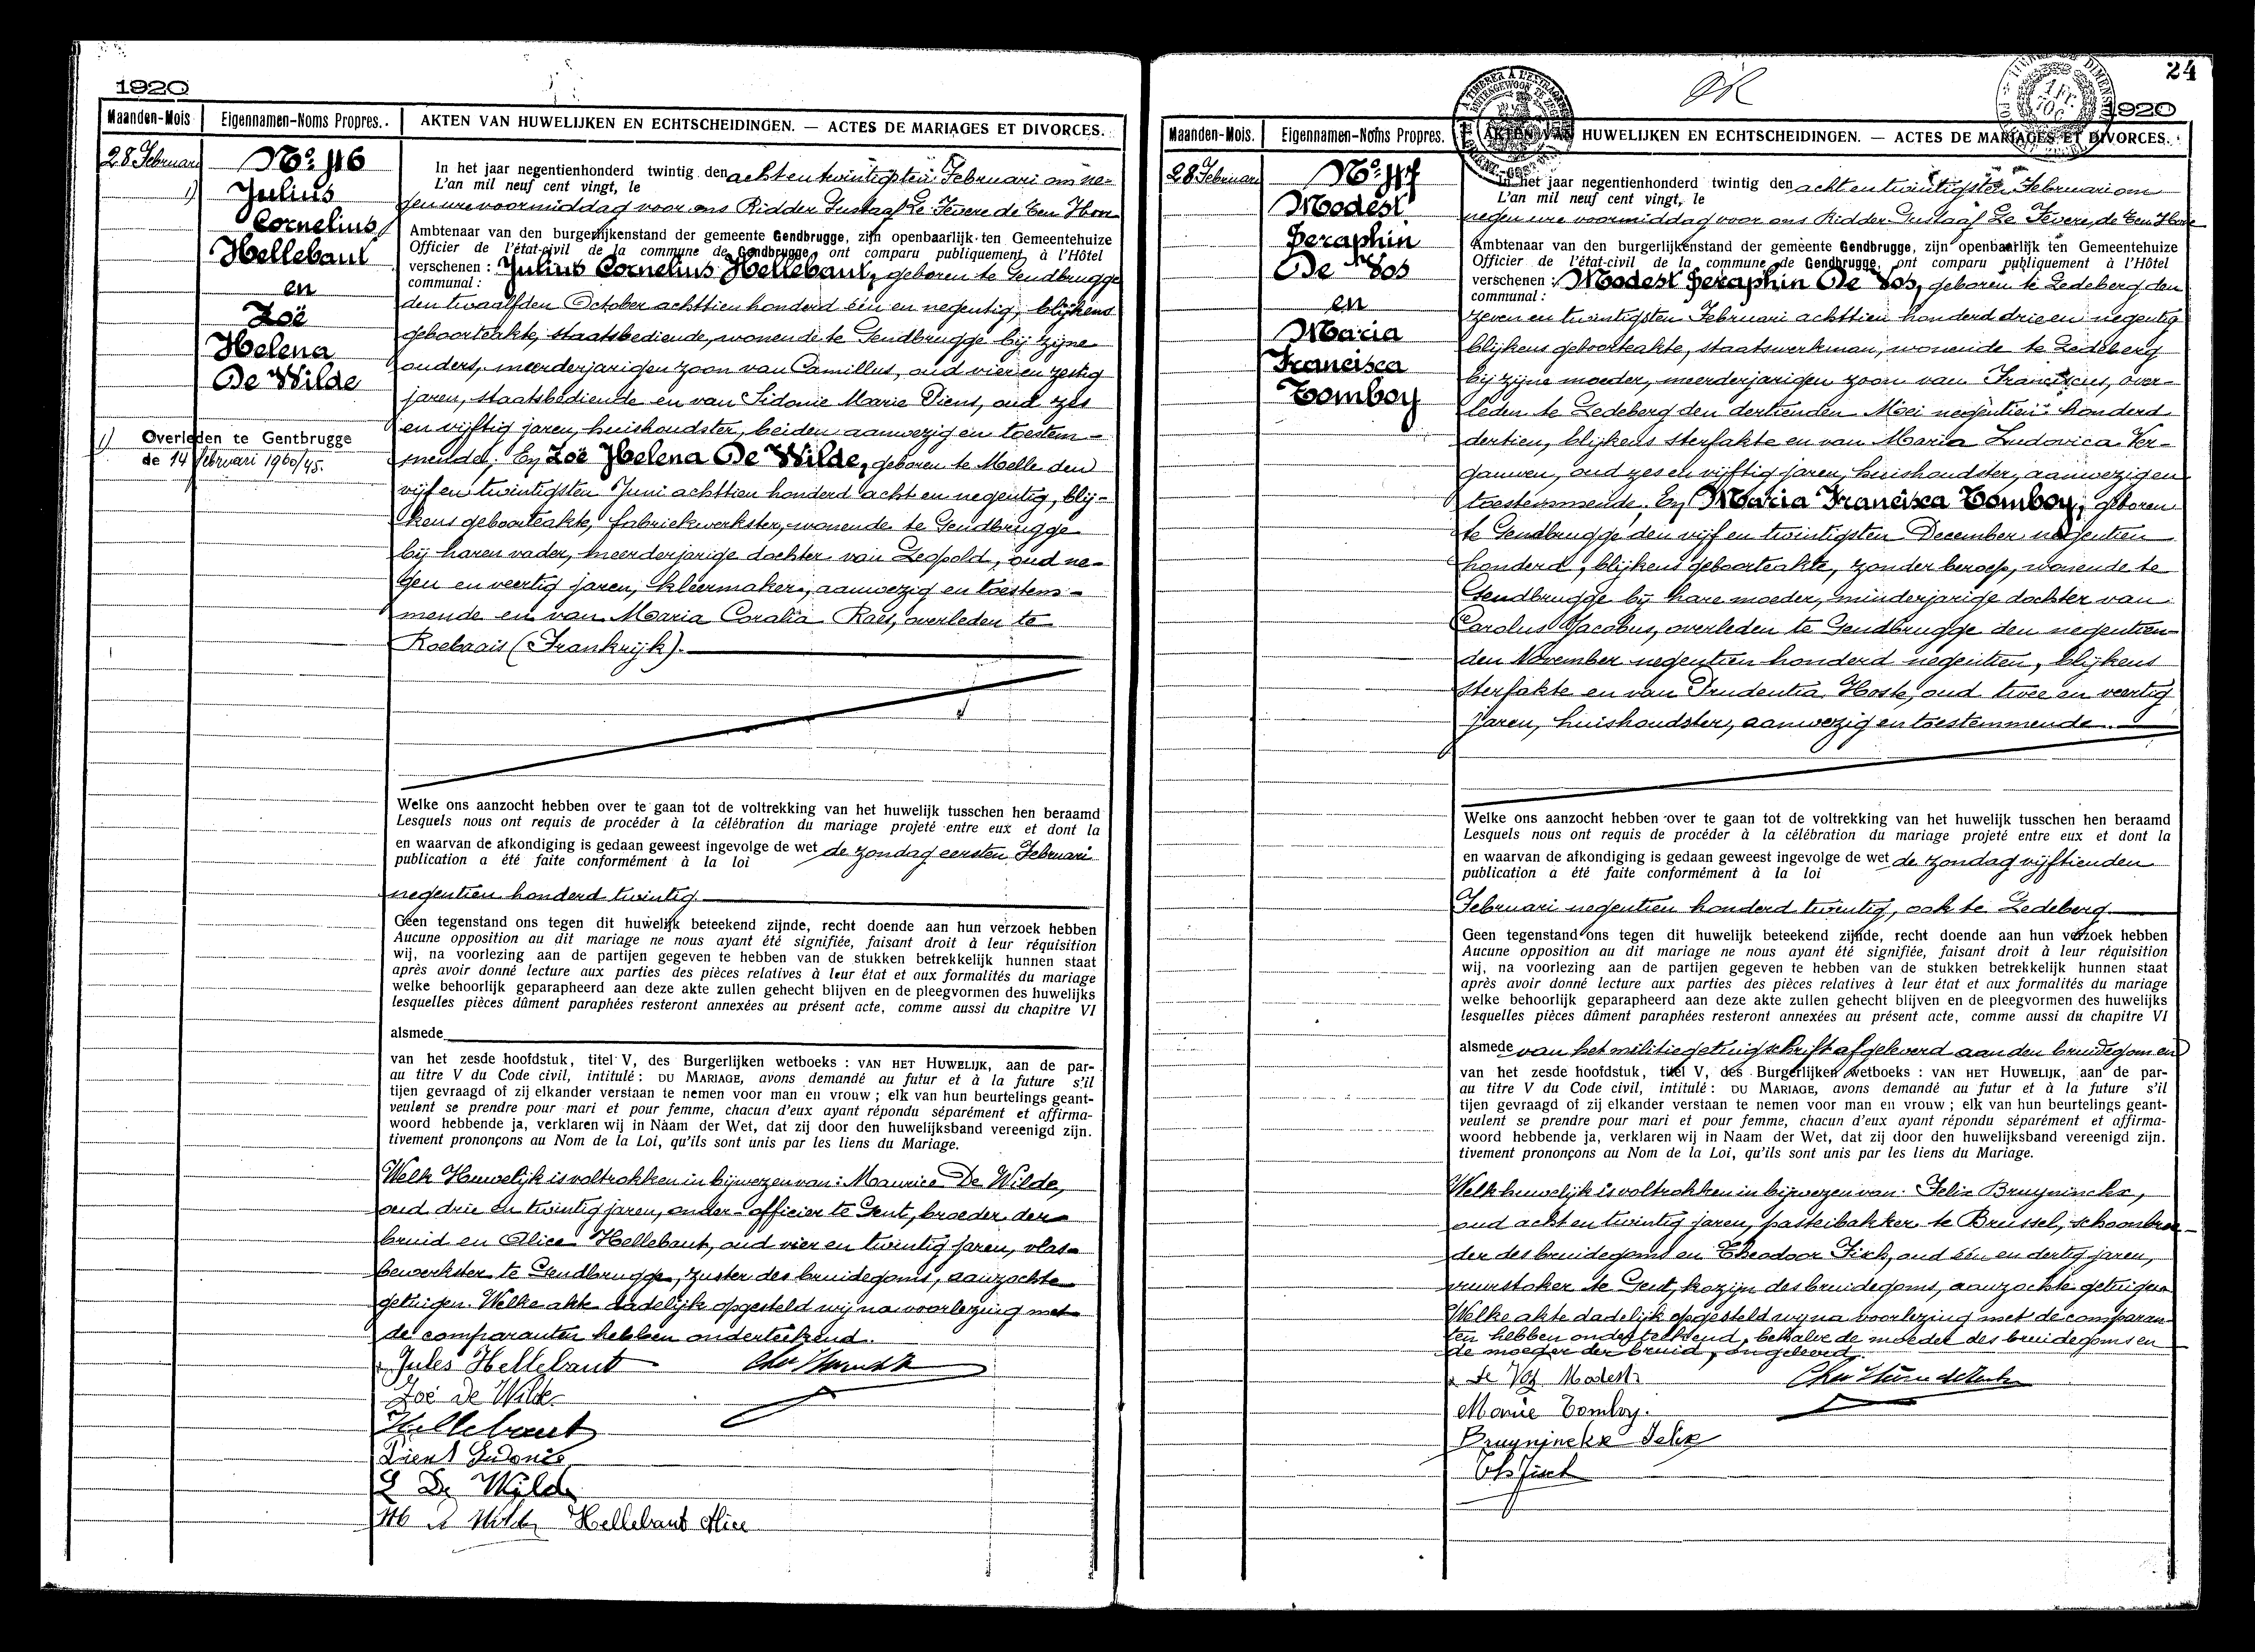 1920
Maanden-Mois
Eigennamen-Noms Propres.
AKTEN VAN HUWELIJKEN EN ECHTSCHEIDINGEN. — ACTES DE MARIAGES ET DIVORCES.
28 Februari
No. 46
1) Julius
Cornelius
Hellebaut
en
Zoë
Helena
De Wilde
1) Overleden te Gentbrugge
de 14 februari 1960/45.
In het jaar negentienhonderd twintig den acht en twintigsten Februari om ne-
L'an mil neuf cent vingt, le
gen ure voormiddag voor ons Ridder Gustaaf Le Fevere de Ten Hove
Ambtenaar van den burgerlijkenstand der gemeente Gendbrugge, zijn openbaarlijk ten Gemeentehuize
Officier de l'état-civil de la commune de Gendbrugge, ont comparu publiquement à l'Hôtel
verschenen : Julius Cornelius Hellebaut, geboren te Gendbrugge
communal :
den twaalfden October achttien honderd één en negentig, blijkens
geboorteakte, staatsbediende, wonende te Gendbrugge bij zijne
ouders, meerderjarigen zoon van Camillus, oud vier en zestig
jaren, staatsbediende en van Sidonie Marie Piens, oud zes
en vijftig jaren, huishoudster, beiden aanwezig en toestem-
mende; En Zoë Helena De Wilde, geboren te Melle den
vijf en twintigsten Juni achttien honderd acht en negentig, blij-
kens geboorteakte, fabriekwerkster, wonende te Gendbrugge
bij haren vader, meerderjarige dochter van Leopold, oud ne-
gen en veertig jaren, kleermaker, aanwezig en toestem-
mende en van Maria Coralia Raes, overleden te
Roebaais (Frankrijk).
Welke ons aanzocht hebben over te gaan tot de voltrekking van het huwelijk tusschen hen beraamd
Lesquels nous ont requis de procéder à la célébration du mariage projeté entre eux et dont la
en waarvan de afkondiging is gedaan geweest ingevolge de wet de zondag eersten Februari
publication a été faite conformément à la loi
negentien honderd twintig
Geen tegenstand ons tegen dit huwelijk beteekend zijnde, recht doende aan hun verzoek hebben
Aucune opposition au dit mariage ne nous ayant été signifiée, faisant droit à leur réquisition
wij, na voorlezing aan de partijen gegeven te hebben van de stukken betrekkelijk hunnen staat
après avoir donné lecture aux parties des pièces relatives à leur état et aux formalités du mariage
welke behoorlijk geparapheerd aan deze akte zullen gehecht blijven en de pleegvormen des huwelijks
lesquelles pièces dûment paraphées resteront annexées au présent acte, comme aussi du chapitre VI
alsmede
van het zesde hoofdstuk, titel V, des Burgerlijken wetboeks : VAN HET HUWELIJK, aan de par-
au titre V du Code civil, intitulé : DU MARIAGE, avons demandé au futur et à la future s'il
tijen gevraagd of zij elkander verstaan te nemen voor man en vrouw ; elk van hun beurtelings geant-
veulent se prendre pour mari et pour femme, chacun d'eux ayant répondu séparément et affirma-
woord hebbende ja, verklaren wij in Naam der Wet, dat zij door den huwelijksband vereenigd zijn.
tivement prononçons au Nom de la Loi, qu'ils sont unis par les liens du Mariage.
Welk Huwelijk is voltrokken in bijwezen van : Maurice De Wilde,
oud drie en twintig jaren, onder-officier te Gent, broeder der
bruid en Alice Hellebaut, oud vier en twintig jaren, vlas-
bewerkster te Gendbrugge, zuster des bruidegoms, aanzochte
getuigen. Welke akte dadelijk opgesteld wij na voorlezing met
de comparanten hebben onderteekend.
Jules Hellebaut
Zoé De Wilde
Hellebaut
Piens Sidonie
L De Wilde
M De Wilde Hellebaut Alice
24
1920
Maanden-Mois.
Eigennamen-Noms Propres.
AKTEN VAN HUWELIJKEN EN ECHTSCHEIDINGEN. — ACTES DE MARIAGES ET DIVORCES.
28 Februari
No. 47
Modest
Seraphin
De Vos
en
Maria
Francisca
Tomboy
In het jaar negentienhonderd twintig den acht en twintigsten Februari om
L'an mil neuf cent vingt, le
negen ure voormiddag voor ons Ridder Gustaaf Le Fevere de Ten Hove
Ambtenaar van den burgerlijkenstand der gemeente Gendbrugge, zijn openbaarlijk ten Gemeentehuize
Officier de l'état-civil de la commune de Gendbrugge, ont comparu publiquement à l'Hôtel
verschenen : Modest Seraphin De Vos, geboren te Ledeberg den
communal :
zeven en twintigsten Februari achttien honderd drie en negentig
blijkens geboorteakte, staatswerkman, wonende te Ledeberg
bij zijne moeder, meerderjarigen zoon van Franciscus, over-
leden te Ledeberg den dertienden Mei negentien honderd
dertien, blijkens sterfakte en van Maria Ludovica Ver-
gauwen, oud zes en vijftig jaren, huishoudster, aanwezig en
toestemmende. En Maria Francisca Tomboy, geboren
te Gendbrugge den vijf en twintigsten December negentien
honderd, blijkens geboorteakte, zonder beroep, wonende te
Gendbrugge bij hare moeder, minderjarige dochter van
Carolus Jacobus, overleden te Gendbrugge den negentien-
den November negentien honderd negentien, blijkens
sterfakte en van Prudentia Hoste, oud twee en veertig
jaren, huishoudster, aanwezig en toestemmende.
Welke ons aanzocht hebben over te gaan tot de voltrekking van het huwelijk tusschen hen beraamd
Lesquels nous ont requis de procéder à la célébration du mariage projeté entre eux et dont la
en waarvan de afkondiging is gedaan geweest ingevolge de wet de zondag vijftienden
publication a été faite conformément à la loi
Februari negentien honderd twintig, ook te Ledeberg
Geen tegenstand ons tegen dit huwelijk beteekend zijnde, recht doende aan hun verzoek hebben
Aucune opposition au dit mariage ne nous ayant été signifiée, faisant droit à leur réquisition
wij, na voorlezing aan de partijen gegeven te hebben van de stukken betrekkelijk hunnen staat
après avoir donné lecture aux parties des pièces relatives à leur état et aux formalités du mariage
welke behoorlijk geparapheerd aan deze akte zullen gehecht blijven en de pleegvormen des huwelijks
lesquelles pièces dûment paraphées resteront annexées au présent acte, comme aussi du chapitre VI
alsmede van het militiegetuigschrift afgeleverd aan den bruidegom en
van het zesde hoofdstuk, titel V, des Burgerlijken wetboeks : VAN HET HUWELIJK, aan de par-
au titre V du Code civil, intitulé : DU MARIAGE, avons demandé au futur et à la future s'il
tijen gevraagd of zij elkander verstaan te nemen voor man en vrouw ; elk van hun beurtelings geant-
veulent se prendre pour mari et pour femme, chacun d'eux ayant répondu séparément et affirma-
woord hebbende ja, verklaren wij in Naam der Wet, dat zij door den huwelijksband vereenigd zijn.
tivement prononçons au Nom de la Loi, qu'ils sont unis par les liens du Mariage.
Welk huwelijk is voltrokken in bijwezen van : Felix Bruyninckx,
oud acht en twintig jaren, pasteibakker te Brussel, schoonbroe-
der des bruidegoms en Theodoor Fick, oud één en dertig jaren,
vuurstoker te Gent, kozijn des bruidegoms, aanzochte getuigen
Welke akte dadelijk opgesteld wij na voorlezing met de comparan-
ten hebben onderteekend, behalve de moeder des bruidegoms en
de moeder der bruid, ongeleerd.
De Vos Modest
Marie Tomboy.
Bruyninckx Felix
Th Fick